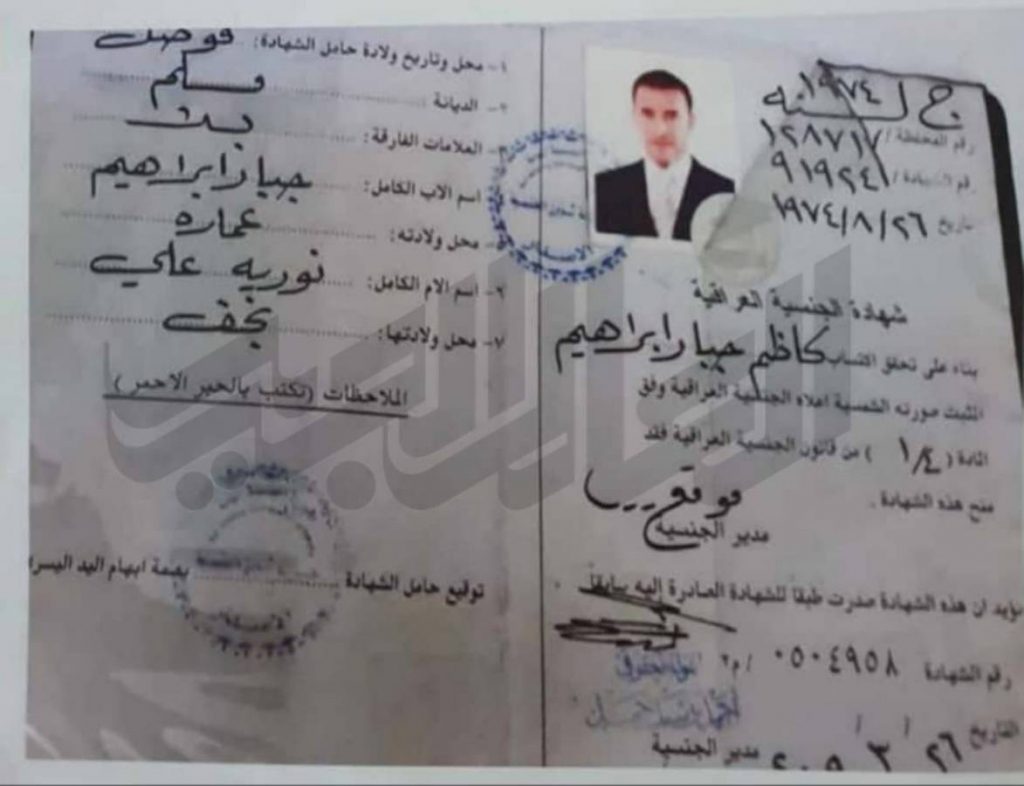 ج ل سنه ١٩٧٤
رقم المحفظة / ١٢٨٧١٧
رقم الشهادة / ٩١٩٢٤١
تاريخ ١٩٧٤/٨/٢٦
شهادة الجنسية العراقية
بناء على تحقق اكتساب كاظم جبار ابراهيم
المثبت صورته الشمسية اعلاه الجنسية العراقية وفق
المادة ( ١/٤ ) من قانون الجنسية العراقية فقد
منح هذه الشهادة .
موقع
مدير الجنسية
نؤيد ان هذه الشهادة صدرت طبقا للشهادة الصادرة إليه سابقا .
رقم الشهادة ٠٥٠٤٩٥٨ / م٢
التاريخ ٢٦ / ٣ /
مدير الجنسية
١- محل وتاريخ ولادة حامل الشهادة:
٢- الديانة : مسلم
٣- العلامات الفارقة:
٤- اسم الاب الكامل: جبار ابراهيم
٥- محل ولادته: عماره
٦- اسم الام الكامل: نوريه علي
٧- محل ولادتها: نجف
الملاحظات (تكتب بالحبر الاحمر)
توقيع حامل الشهادة
بصمة ابهام اليد اليسرا